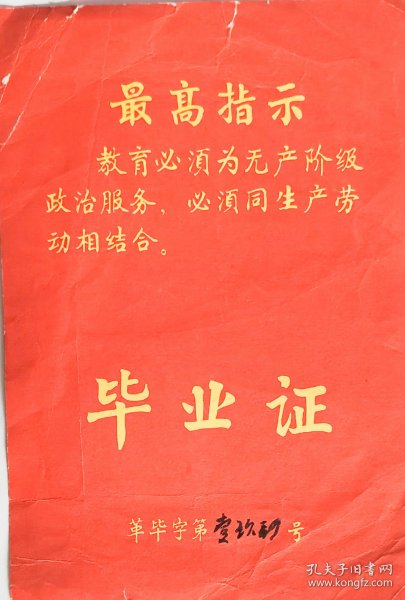 最高指示
教育必須为无产阶级
政治服务，必須同生产劳
动相结合。
毕业证
革毕字第壹玖号
孔夫子旧书网
www.kongfz.com